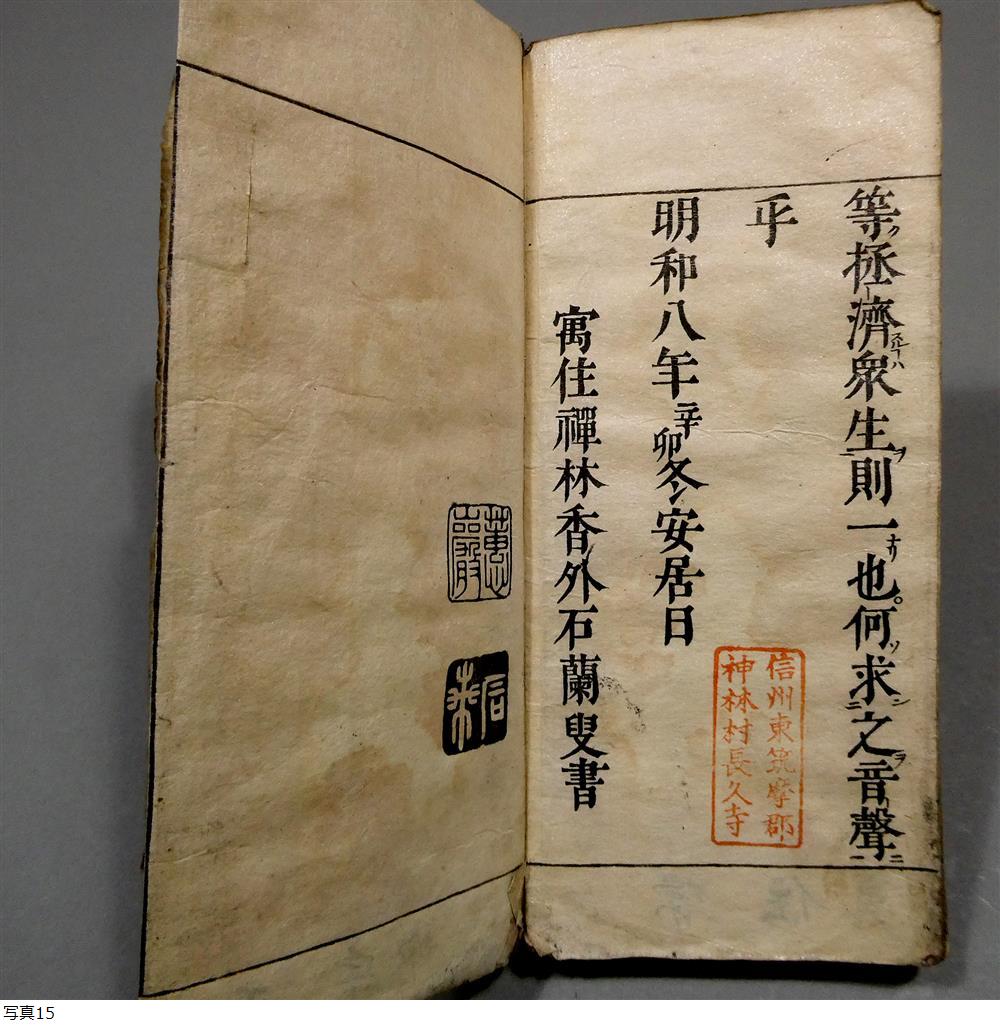 等拯濟衆生則一也何求之音聲
乎
明和八年辛卯冬安居日
寓住禪林香外石蘭叟書
信州東筑摩郡
神林村長久寺
写真15